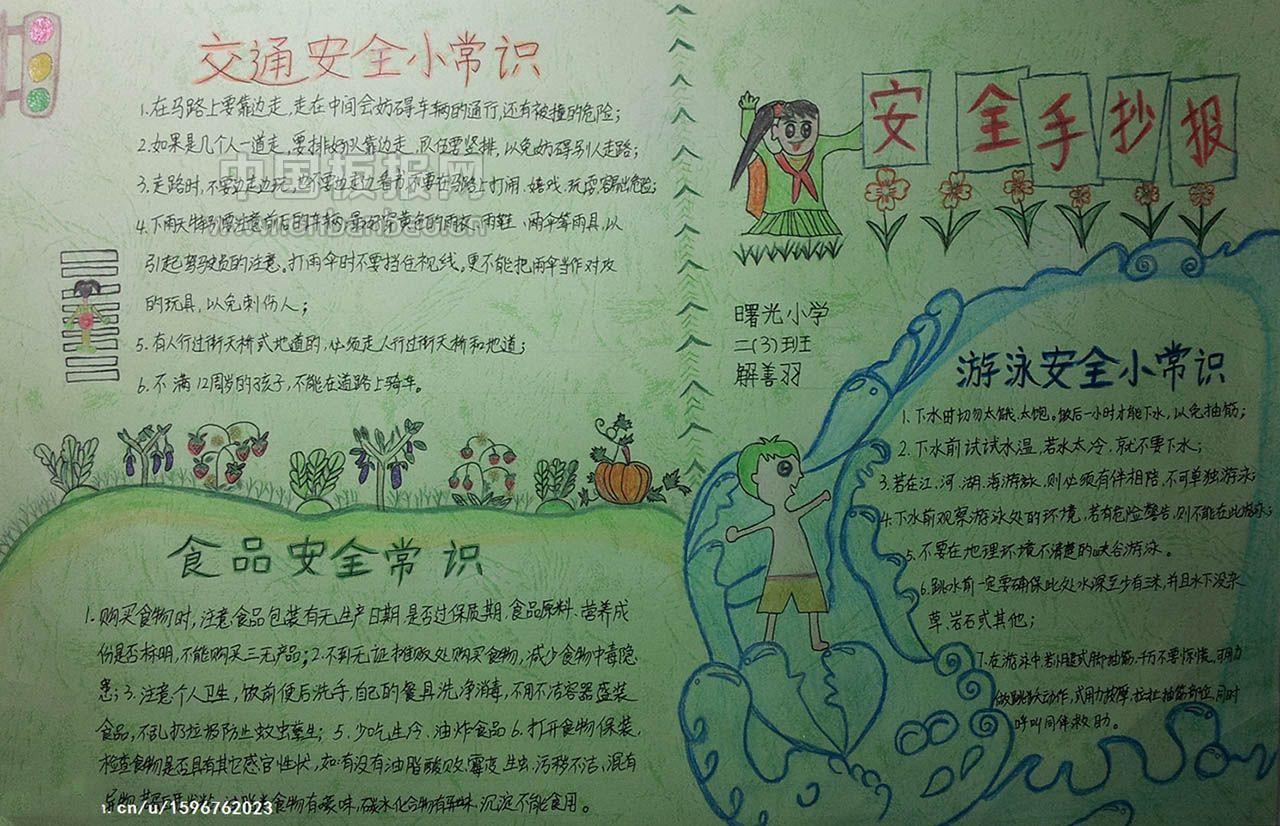 交通安全小常识
1.在马路上要靠边走,走在中间会妨碍车辆的通行,还有被撞的危险;
2.如果是几个人一道走,要排好队靠边走,队伍要紧排,以免妨碍别人走路;
3.走路时,不要边走边玩,也不要边走边看书,不要在马路上打闹、嬉戏、玩耍,容易出危险;
中国板报网
4.下雨天特别要注意前后的车辆,最好穿黄色的雨衣、雨鞋、雨伞等雨具,以
引起驾驶员的注意。打雨伞时不要挡住视线。更不能把雨伞当作对攻
的玩具,以免刺伤人;
5.有人行过街天桥式地道的,必须走人行过街天桥和地道;
6.不满12周岁的孩子,不能在道路上骑车。
食品安全常识
1.购买食物时,注意食品包装有无生产日期.是否过保质期.食品原料、营养成
份是否标明,不能购买三无产品;2.不到无证摊贩处购买食物,减少食物中毒隐
患;3.注意个人卫生,饭前便后洗手,自己的餐具洗净消毒,不用不洁容器盛装
食品,不乱扔垃圾防止蚊虫孳生;5.少吃生冷、油炸食品6.打开食物保装,
检查食物是否具有其它感官性状,如:有没有油脂酸败、霉变,生虫,污秽不洁,混有
食物有嚎味,碳水化合物有异味,沉淀不能食用。
cn/u/1596762023
安全手抄报
曙光小学
二(3)班
解善羽
游泳安全小常识
1.下水时切勿太饿、太饱。饭后一小时才能下水,以免抽筋;
2.下水前试试水温,若水太冷,就不要下水;
3.若在江、河、湖、海游泳,则必须有伴相陪,不可单独游泳;
4.下水前观察游泳处的环境,若有危险警告,则不能在此游泳;
5.不要在地理环境不清楚的峡谷游泳。
6.跳水前一定要确保此处水深至少有三米,并且水下没杂
草、岩石式其他;
7.在游泳中若小腿式脚抽筋,千万不要惊慌,可用力
做跳跃动作,式用力按摩,拉扯抽筋部位,同时
呼叫同伴救助。